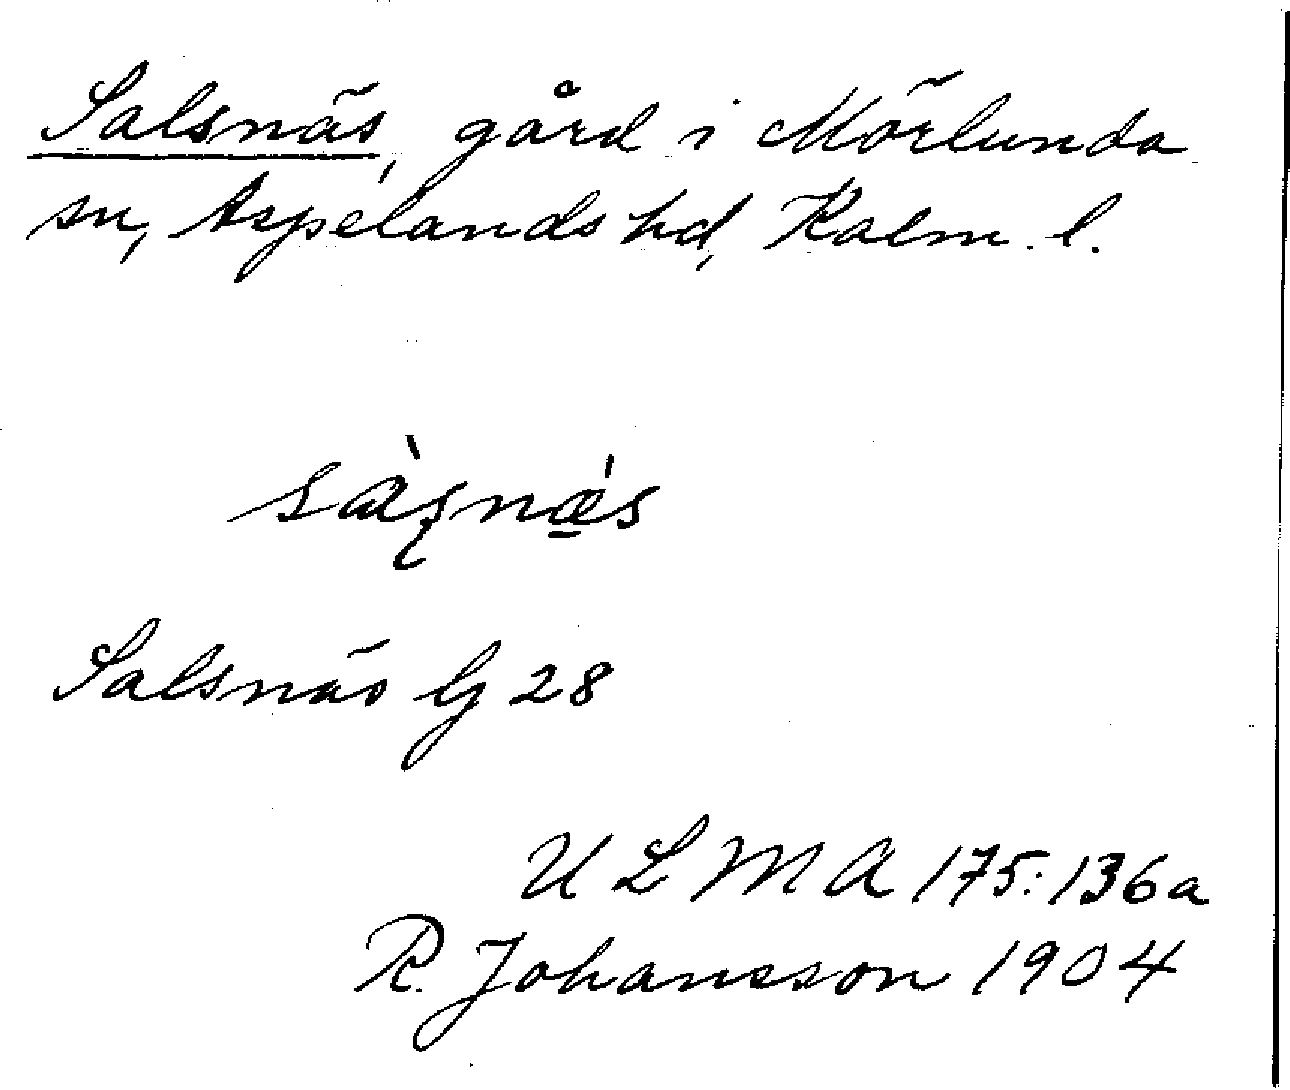 Salsnäs, gård i Mörlunda
sn, Aspelands hd, Kalm. l.
sàʂnǽ̠s
Salsnäs G 28
ULMA 175:136a
R. Johansson 1904